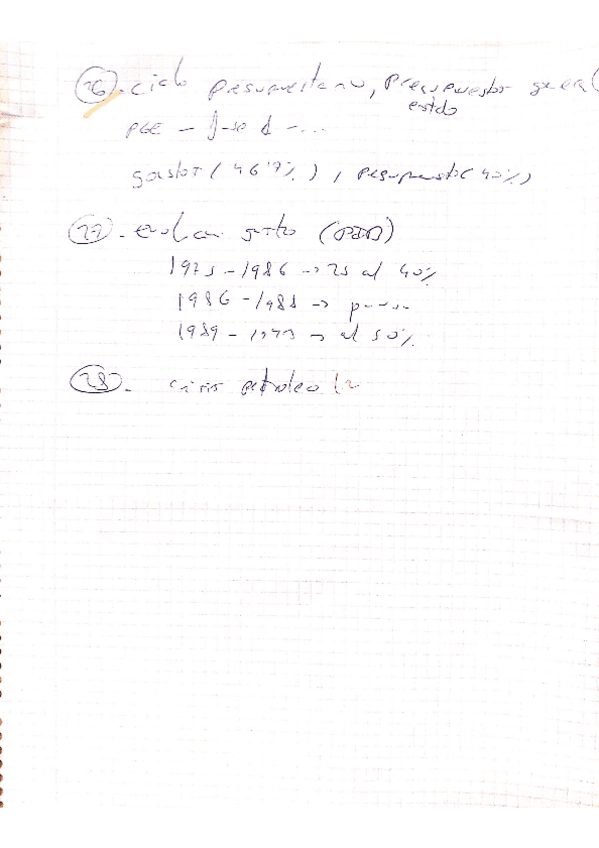 26. ciclo presupuestario, Presupuestos general
estado
PGE -
gastos (46'7%), presupuesto (40%)
27. evolucion gasto (PIB)
1975-1986 -> 25 al 40%
1986-1988 ->
1989-1993 -> al 50%
28. crisis petroleo (2